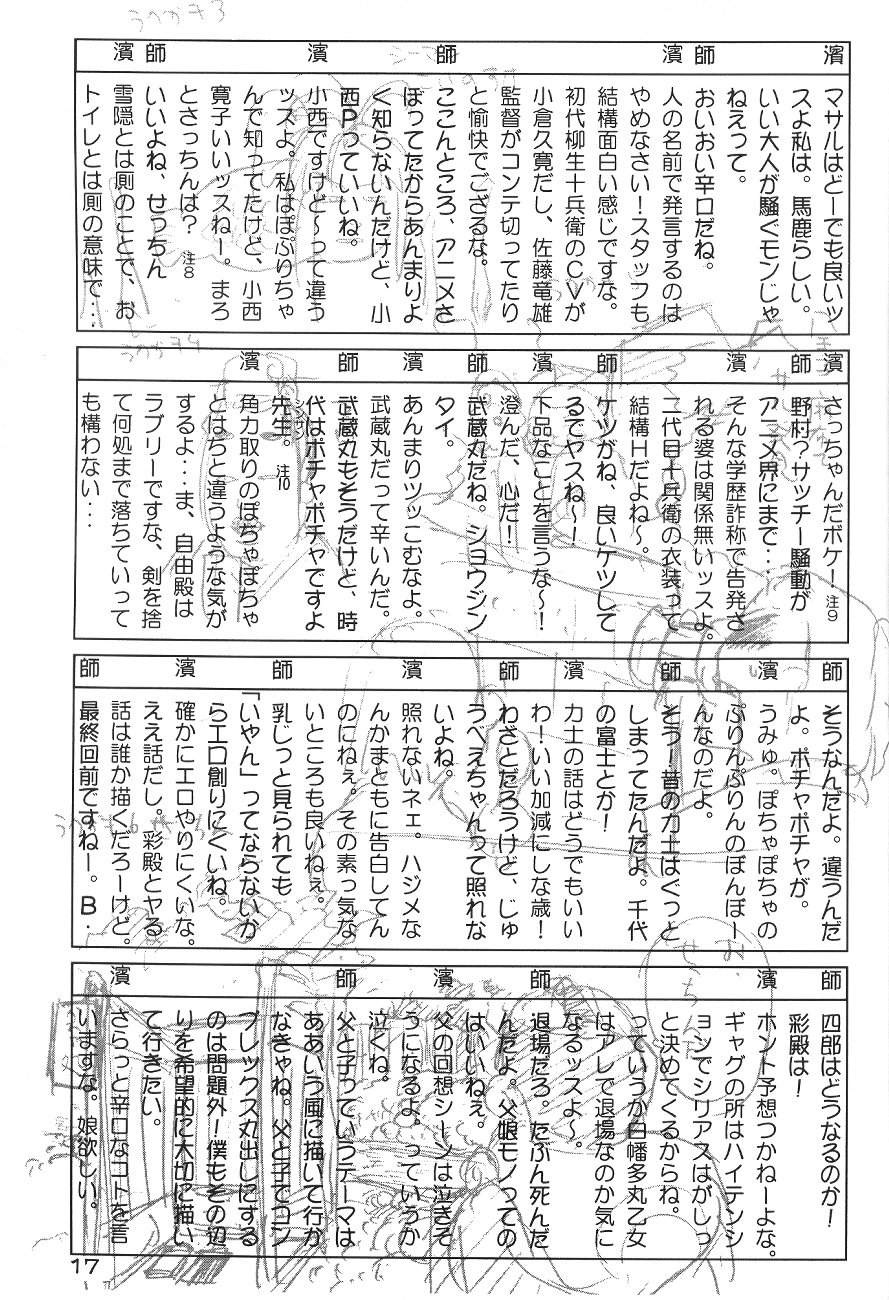 濱 師 濱 師 濱 師 濱
マサルはどーでも良いッ
スよ私は。馬鹿らしい。
いい大人が騒ぐモンじゃ
ねえって。
おいおい辛口だね。
人の名前で発言するのは
やめなさい!スタッフも
結構面白い感じですな。
初代柳生十兵衛のCVが
小倉久寛だし、佐藤竜雄
監督がコンテ切ってたり
と愉快でござるな。
ここんところ、アニメさ
ぼってたからあんまりよ
く知らないんだけど、小
西Pっていいね。
小西ですけど〜って違う
ッスよ。私はぽぷりちゃ
んで知ってたけど、小西
寛子いいッスねー。まろ
とさっちんは? 注8
いいよね、せっちん
雪隠とは厠のことで、お
トイレとは厠の意味で・・・
濱 師 濱 師 濱 師 濱 師 濱
さっちゃんだボケ! 注9
野村?サッチー騒動が
アニメ界にまで・・・
そんな学歴詐称で告発さ
れる婆は関係無いッスよ。
二代目十兵衛の衣装って
結構Hだよね〜。
ケツがね、良いケツして
るでヤスね〜!
下品なことを言うな〜!
澄んだ、心だ!
武蔵丸だね。ショウジン
タイ。
あんまりツッこむなよ。
武蔵丸だって辛いんだ。
武蔵丸もそうだけど、時
代はポチャポチャですよ
先生。 注10
シンサン
角力取りのぽちゃぽちゃ
とはちと違うような気が
するよ・・・ま、自由殿は
ラブリーですな、剣を捨
て何処まで落ちていって
も構わない・・・
師 濱 師 濱 師 濱 師 濱 師
そうなんだよ。違うんだ
よ。ポチャポチャが。
うみゅ。ぽちゃぽちゃの
ぷりんぷりんのぼんぼー
んなのだよ。
そう!昔の力士はぐっと
しまってたんだよ。千代
の富士とか!
力士の話はどうでもいい
わ!いい加減にしな歳!
わざとだろうけど、じゅ
うべえちゃんって照れな
いよね。
照れないネェ。ハジメな
んかまともに告白してん
のにねぇ。その素っ気な
いところも良いねぇ。
乳じっと見られても
「いやん」ってならないか
らエロ創りにくいね。
確かにエロやりにくいな。
ええ話だし。彩殿とヤる
話は誰か描くだろーけど。
最終回前ですねー。B・
師 濱 師 濱 師 濱
四郎はどうなるのか!
彩殿は!
ホント予想つかねーよな。
ギャグの所はハイテンシ
ョンでシリアスはがしっ
と決めてくるからね。
っていうか白幡多丸乙女
はアレで退場なのか気に
なるッスよ〜。
退場だろ。たぶん死んだ
んだよ。父娘モノっての
はいいねぇ。
父の回想シーンは泣きそ
うになるよ。っていうか
泣くね。
父と子っていうテーマは
ああいう風に描いて行か
なきゃね。父と子でコン
プレックス丸出しにする
のは問題外!僕もその辺
りを希望的に大切に描い
て行きたい。
さらっと辛口なコトを言
いますな。娘欲しい。
17